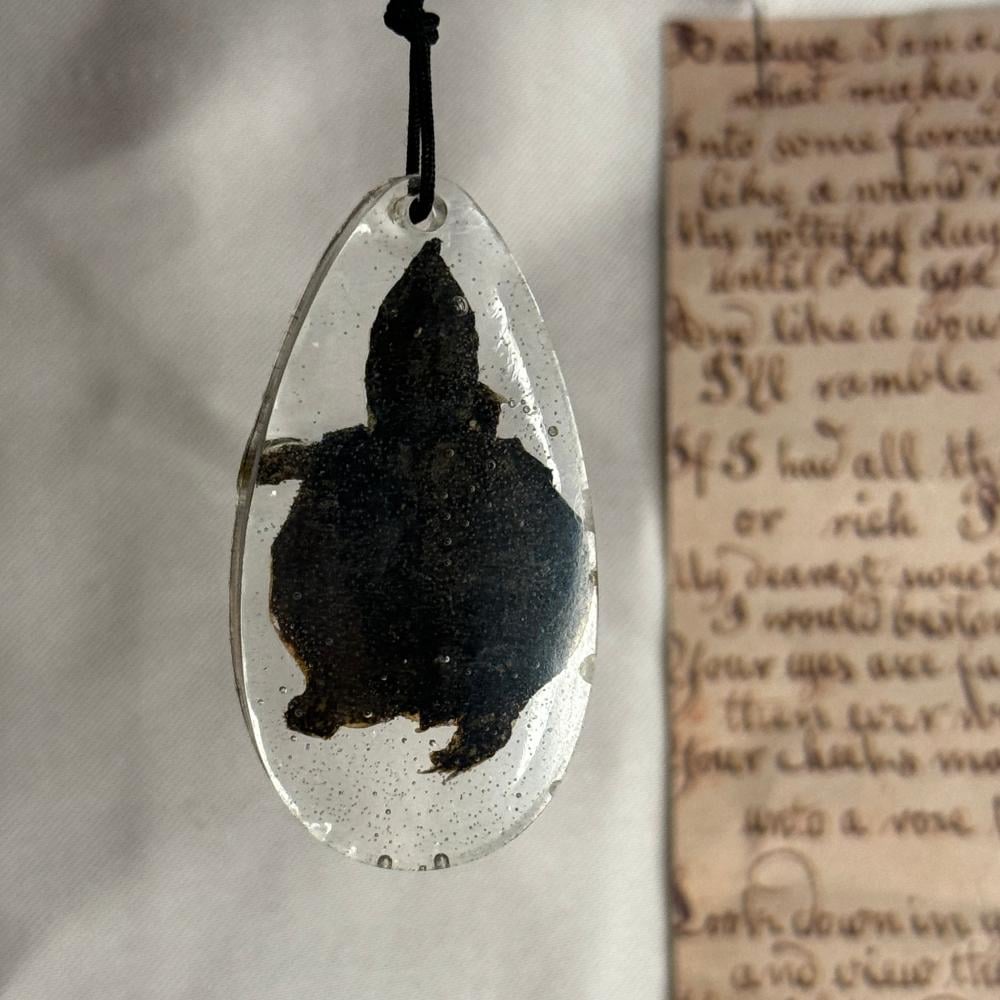 Because I am a
what makes
Into some fores
like a wand'r
My
until old age
And like a wou
I'll ramble
If I had all th
or rich
My dearest
I would bestow
Your eyes are
then ever
Your cheeks
unto a rose
Look down in
and view the